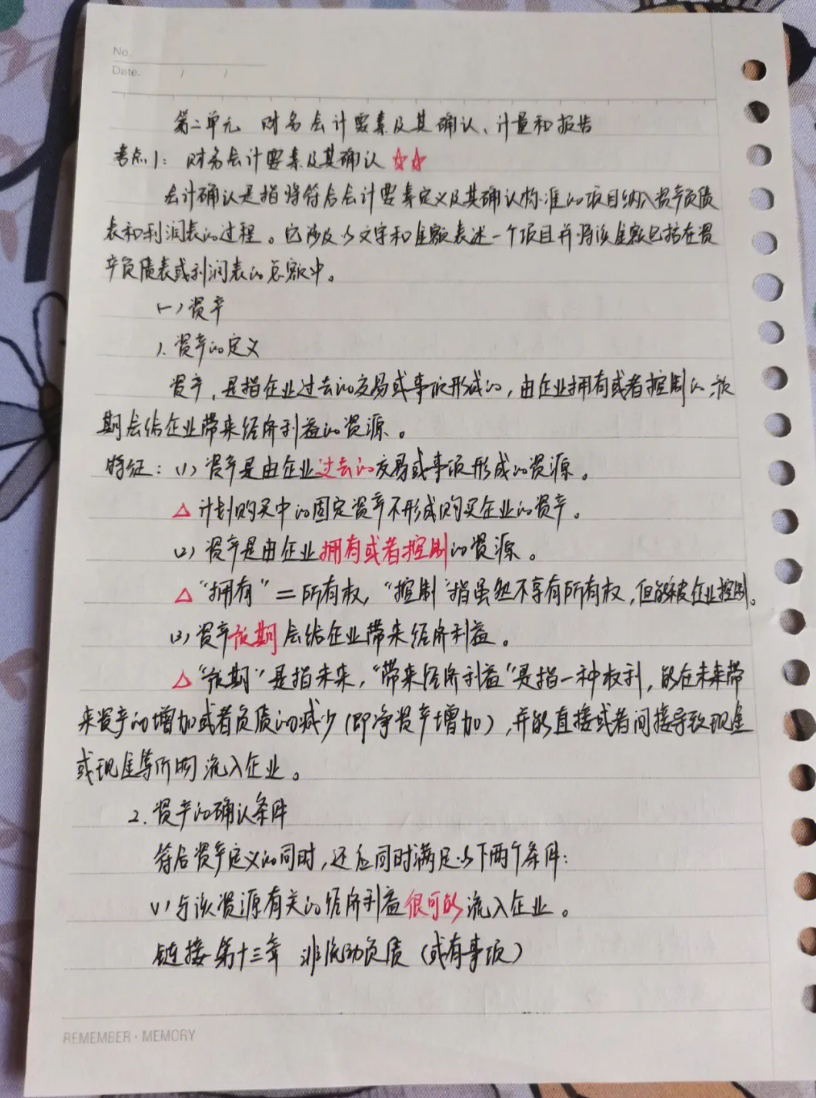 No.
Date. / /
第二单元 财务会计要素及其确认、计量和报告
考点1：财务会计要素及其确认☆☆
会计确认是指将符合会计要素定义及其确认标准的项目纳入资产负债
表和利润表的过程。它涉及以文字和金额表述一个项目并将该金额包括在资
产负债表或利润表的总额中。
(一)资产
1.资产的定义
资产，是指企业过去的交易或事项形成的，由企业拥有或者控制的，预
期会给企业带来经济利益的资源。
特征：(1)资产是由企业过去的交易或事项形成的资源。
△计划购买中的固定资产不形成购买企业的资产。
(2)资产是由企业拥有或者控制的资源。
△“拥有”=所有权，“控制”指虽然不享有所有权，但能被企业控制。
(3)资产预期会给企业带来经济利益。
△“预期”是指未来，“带来经济利益”是指一种权利，能在未来带
来资产的增加或者负债的减少(即净资产增加)，并能直接或者间接导致现金
或现金等价物流入企业。
2.资产的确认条件
符合资产定义的同时，还应同时满足以下两个条件：
(1)与该资源有关的经济利益很可能流入企业。
链接第十三章 非流动负债(或有事项)
REMEMBER·MEMORY